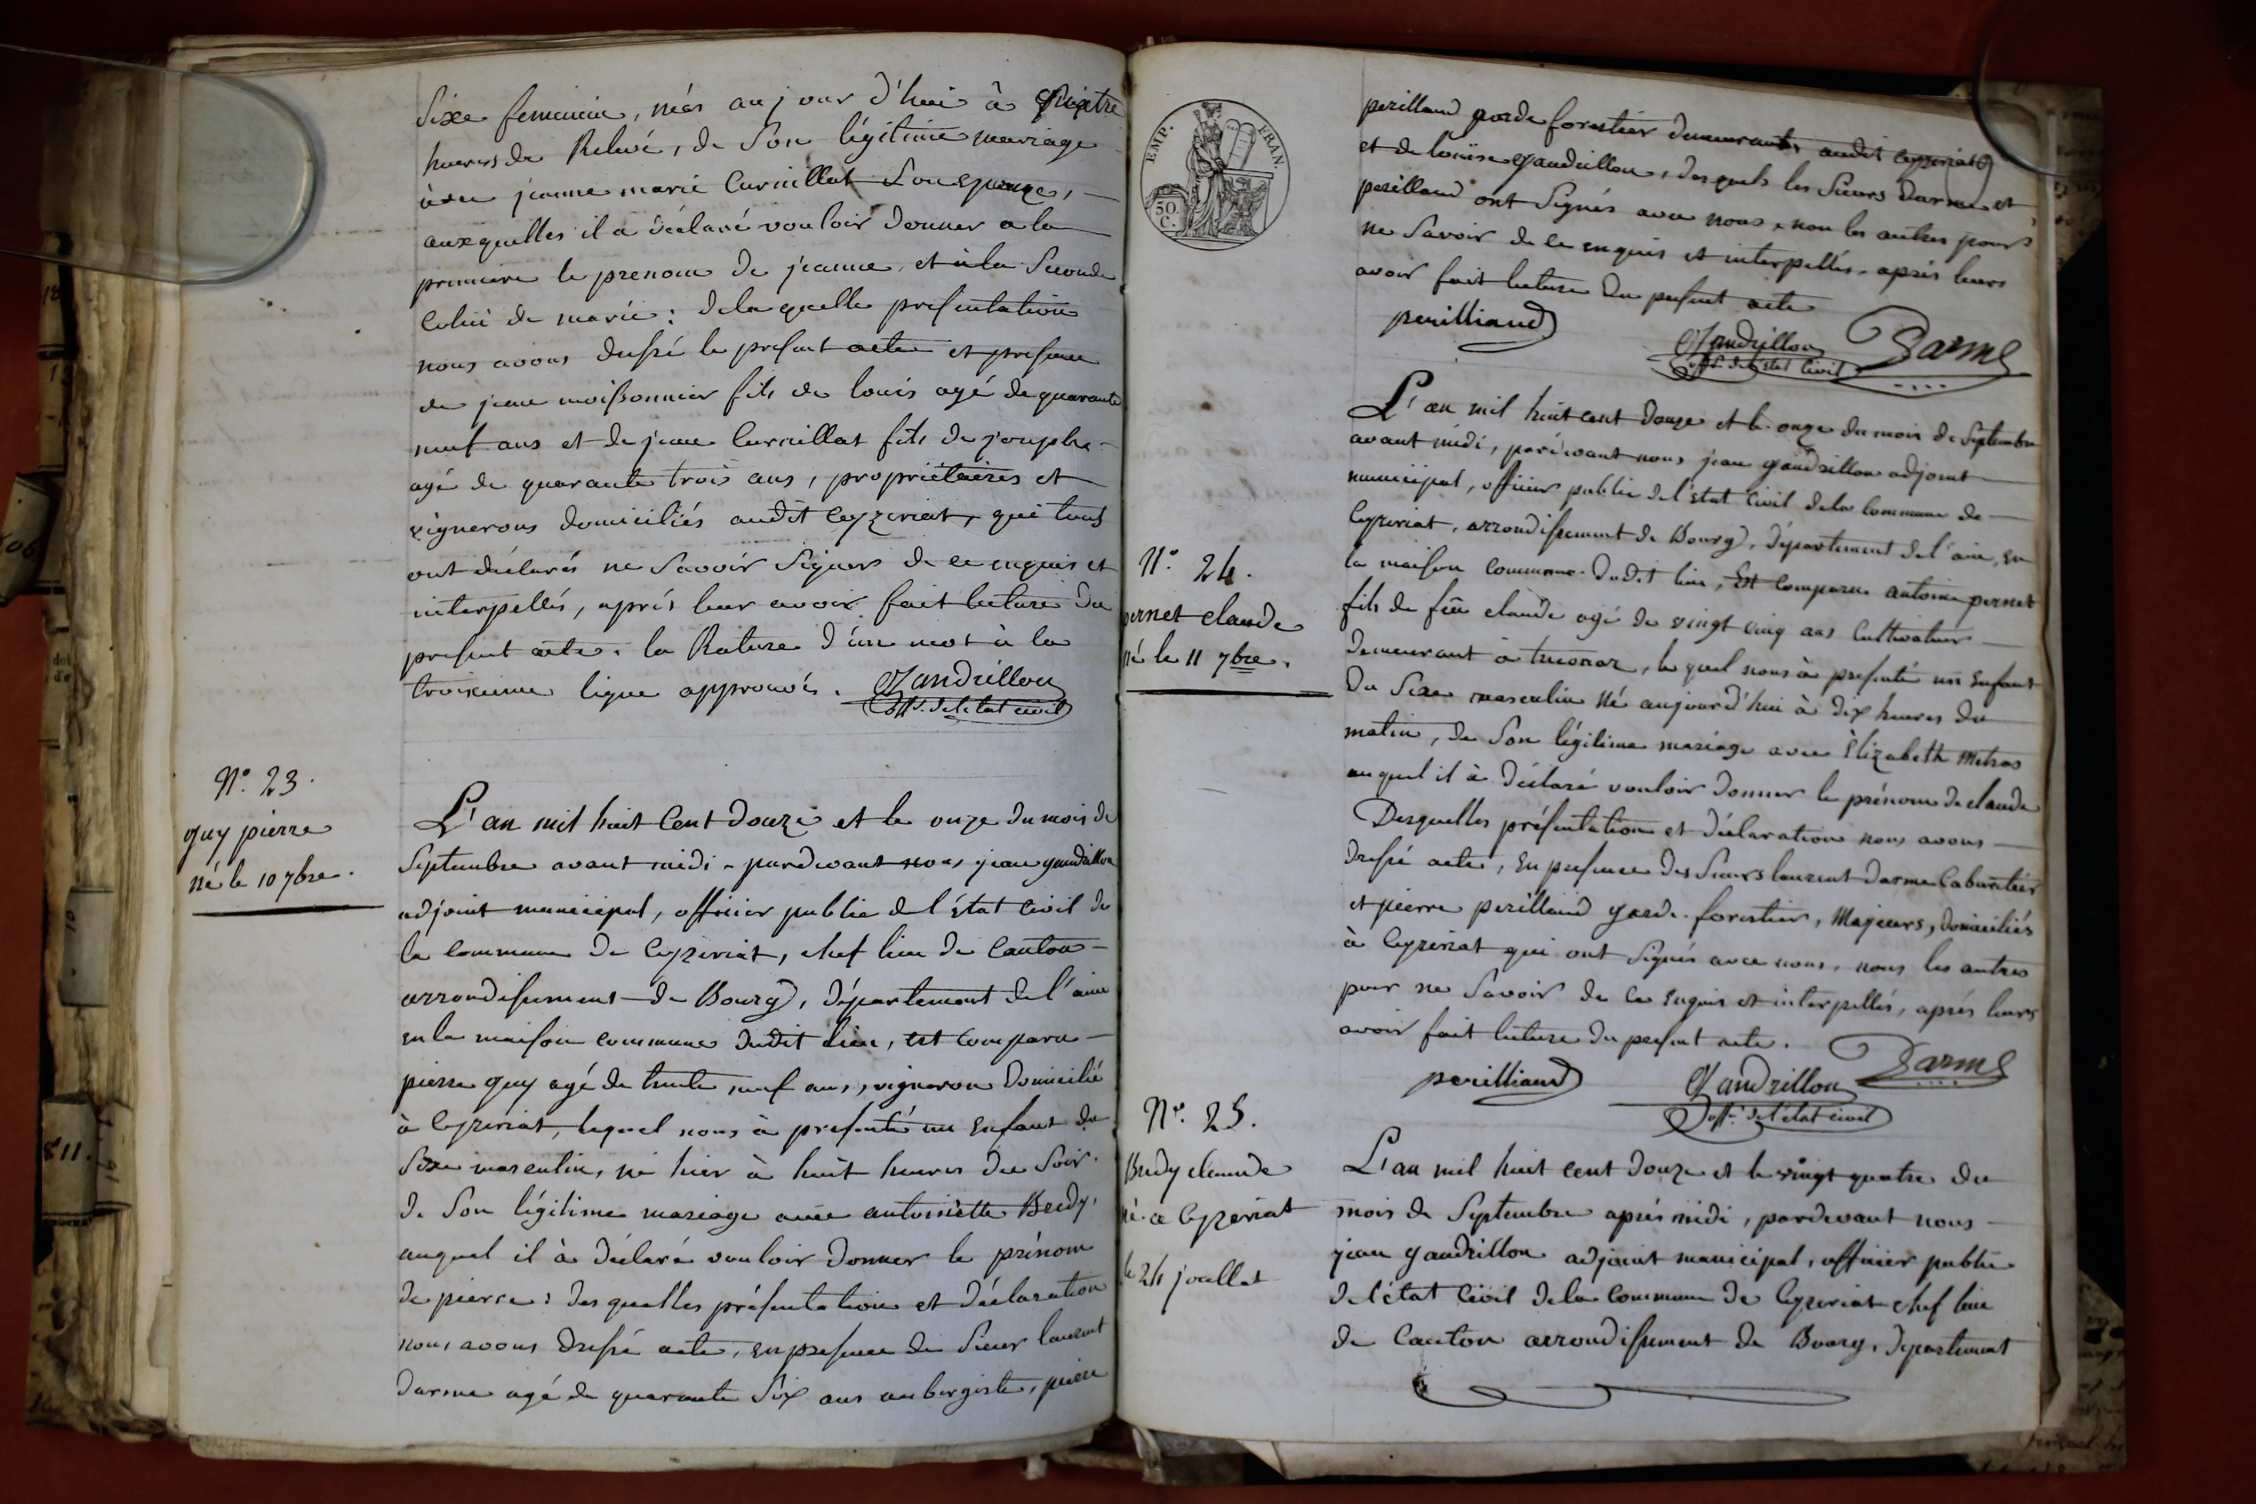 Sixe feminin, néés aujour d'hui à quatre
heures de Relevé, de Son légitime mariage
avec jeanne marie Curnillat Son Epouze,
auxquelles il a déclaré vouloir donner a la
premiere le prenom de jeanne, et à la Seconde
Celui de marie: de la quelle presentation
nous avons dressé le present acte et presence
de jean moissonnier fils de louis agé de quarante
neuf ans et de jean Curnillat fils de joseph
agé de quarante trois ans, propriétaires et
vignerons domiciliés audit Ceyzeriat, qui tous
ont déclarés ne Savoir Signer de ce enquis et
interpellés, aprés leur avoir fait lecture du
present acte. la Rature d'un mot à la
troisieme ligne approuvés. Gandrillon
off. de l'etat civil
N.° 23.
guy pierre
né le 10 7bre.
L'an mil huit Cent douze et le onze du mois de
Septembre avant midi, pardevant nous jean gandrillon
adjoint municipal, officier public de l'état Civil de
la commune de Ceyzeriat, chef lieu de Canton
arrondissement de Bourg, département de l'ain
en la maison commune dudit lieu, est comparu
pierre guy agé de trente neuf ans, vigneron domicilié
à Ceyzeriat, lequel nous à presenté un Enfant du
Sixe masculin, né hier à huit heures du Soir.
de Son légitime mariage avec antoinette Bredy,
auquel il à déclaré vouloir donner le prénom
de pierre: des quelles présentation et déclaration
nous avons dressé acte, en presence de Sieur laurent
darme agé de quarante Six ans aubergiste, pierre
EMP. FRAN.
50.
C.
perilland garde forestier demeurants audit Ceyzeriat
et de louise gandrillon, desquels les Sieurs darme et
perilland ont Signés avec nous, non les autres pour
ne Savoir de ce enquis et interpellés, aprés leurs
avoir fait lecture du present acte
perilliand
Gandrillon
off. de l'etat Civil
Darme
N.° 24.
pernet claude
né le 11 7bre.
L'an mil huit cent douze et le onze du mois de Septembre
avant midi, pardevant nous jean gandrillon adjoint
municipal, officier public de l'état Civil de la Commune de
Ceyzeriat, arrondissement de Bourg, département de l'ain, en
la maison commune dudit lieu, Est comparu antoine pernet
fils de feu claude agé de vingt cinq ans Cultivateur
demeurant à treconar, le quel nous à presenté un Enfant
du Sixe masculin né aujourd'hui à dix heures du
matin, de Son légitime mariage avec Elizabeth Metras
auquel il à déclaré vouloir donner le prénom de claude
Desquelles présentation et déclaration nous avons
dressé acte, En presence des Sieurs laurent darme Cabaretier
et pierre perilland garde forestier, Majeurs, domiciliés
à Ceyzeriat qui ont Signés avec nous, nous les autres
pour ne Savoir de ce Enquis et interpellés, aprés leurs
avoir fait lecture du present acte.
perilliand
Gandrillon
off. de l'etat civil
Darme
N.° 25.
Bredy claude
né a Ceyzeriat
le 24 jouillet
L'an mil huit cent douze et le vingt quatre du
mois de Septembre aprés midi, pardevant nous
jean gandrillon adjoint municipal, officier public
de l'état Civil de la commune de Ceyzeriat chef lieu
de Canton arrondissement de Bourg, département
811.